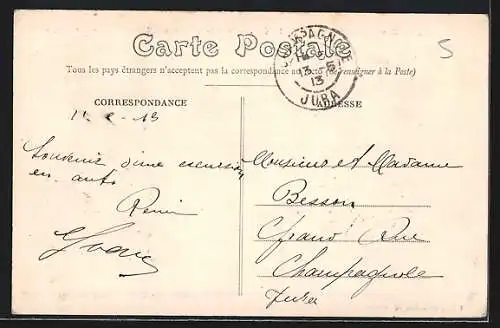 Carte Postale
Tous les pays étrangers n'acceptent pas la correspondance au recto (se renseigner à la Poste)
CORRESPONDANCE
ADRESSE
JURA
13
Souvenir d'une excursion
en auto
Monsieur et Madame
Besson
Grand' Rue
Champagnole
Jura
5